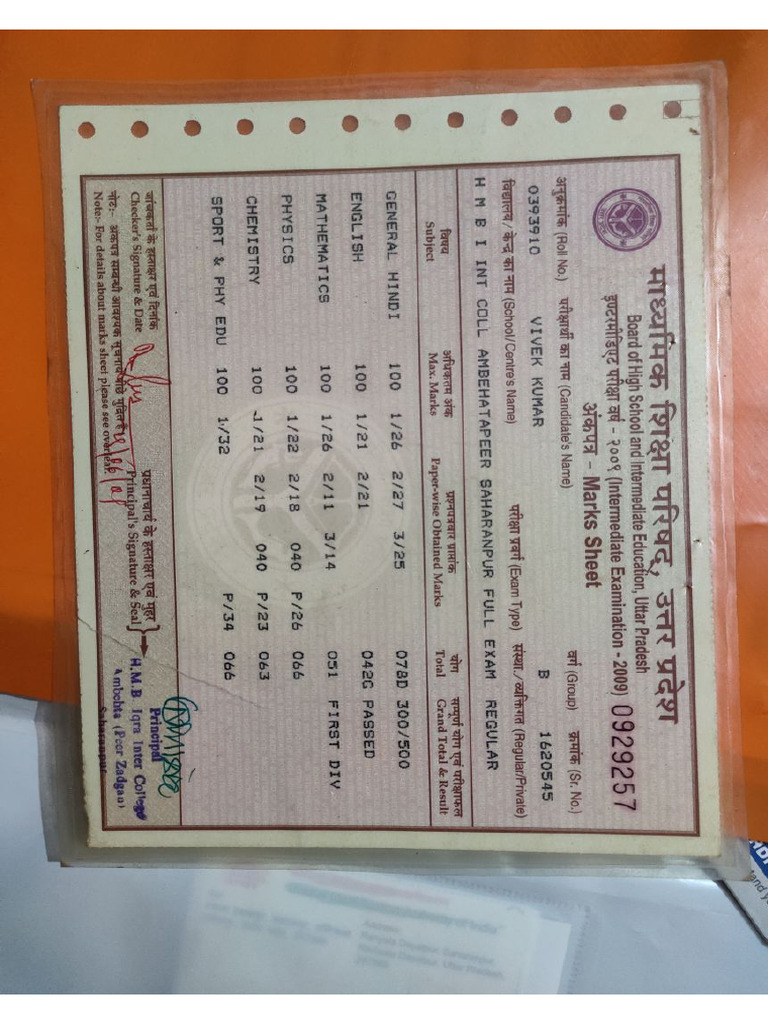 माध्यमिक शिक्षा परिषद्, उत्तर प्रदेश
Board of High School and Intermediate Education, Uttar Pradesh
इण्टरमीडिएट परीक्षा वर्ष - २००९ (Intermediate Examination - 2009) 0929257
अंकपत्र – Marks Sheet
अनुक्रमांक (Roll No.) परीक्षार्थी का नाम (Candidate's Name) वर्ग (Group) क्रमांक (Sr. No.)
0393910 VIVEK KUMAR B 1620545
विद्यालय / केन्द्र का नाम (School/Centre's Name) परीक्षा प्रवर्ग (Exam Type) संस्था / व्यक्तिगत (Regular/Private)
H M B I INT COLL AMBEHATAPEER SAHARANPUR FULL EXAM REGULAR
विषय अधिकतम अंक प्रश्नपत्रवार प्राप्तांक योग सम्पूर्ण योग एवं परीक्षाफल
Subject Max. Marks Paper-wise Obtained Marks Total Grand Total & Result
GENERAL HINDI 100 1/26 2/27 3/25 078D 300/500
ENGLISH 100 1/21 2/21 042G PASSED
MATHEMATICS 100 1/26 2/11 3/14 051 FIRST DIV
PHYSICS 100 1/22 2/18 040 P/26 066
CHEMISTRY 100 1/21 2/19 040 P/23 063
SPORT & PHY EDU 100 1/32 P/34 066
जांचकर्ता के हस्ताक्षर एवं दिनांक
Checker's Signature & Date
प्रधानाचार्य के हस्ताक्षर एवं मुहर
Principal's Signature & Seal
Principal
H.M.B Iqra Inter College
Ambehta (Peer Zadgan)
Saharanpur
नोट:- अंकपत्र सम्बन्धी आवश्यक सूचना पीछे मुद्रित है।
Note:- For details about marks sheet please see overleaf.